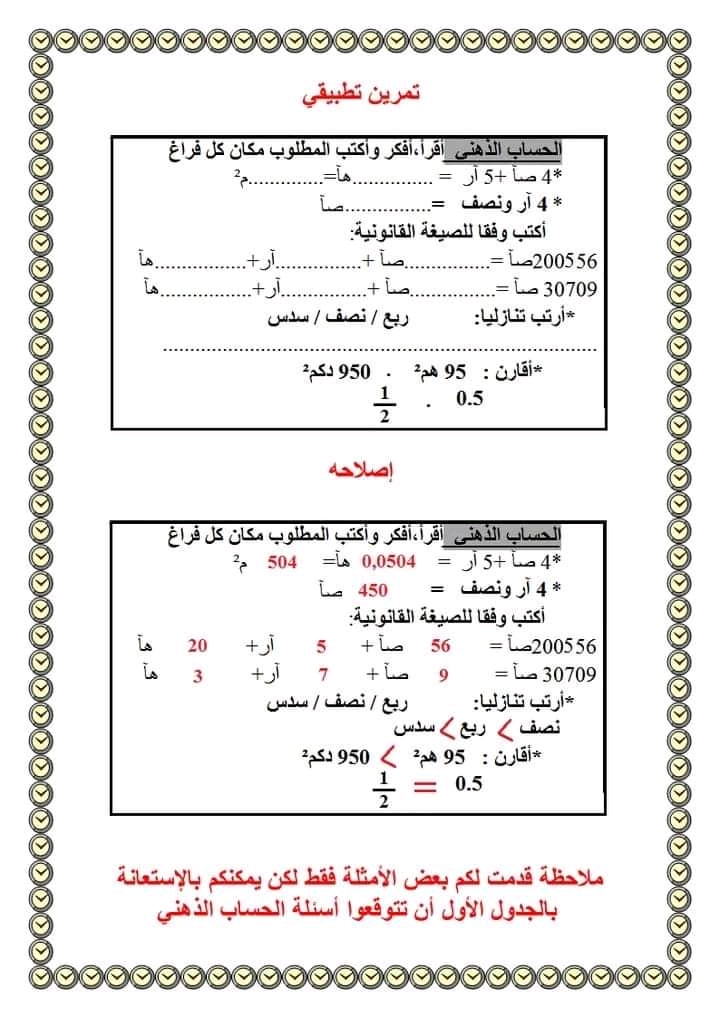 تمرين تطبيقي
الحساب الذهني أقرأ،أفكر وأكتب المطلوب مكان كل فراغ
*4 صآ +5 آر = ................هآ=..............م²
* 4 آر ونصف =................صآ
أكتب وفقا للصيغة القانونية:
200556صآ =................صآ +................آر+.................هآ
30709 صآ =................صآ +................آر+.................هآ
*أرتب تنازليا: ربع / نصف / سدس
................................................................................
*أقارن : 95 هم² . 950 دكم²
0.5 . 1/2
إصلاحه
الحساب الذهني أقرأ،أفكر وأكتب المطلوب مكان كل فراغ
*4 صآ +5 آر = 0,0504 هآ= 504 م²
* 4 آر ونصف = 450 صآ
أكتب وفقا للصيغة القانونية:
200556صآ = 56 صآ + 5 آر+ 20 هآ
30709 صآ = 9 صآ + 7 آر+ 3 هآ
*أرتب تنازليا: ربع / نصف / سدس
نصف > ربع > سدس
*أقارن : 95 هم² > 950 دكم²
0.5 = 1/2
ملاحظة قدمت لكم بعض الأمثلة فقط لكن يمكنكم بالإستعانة
بالجدول الأول أن تتوقعوا أسئلة الحساب الذهني